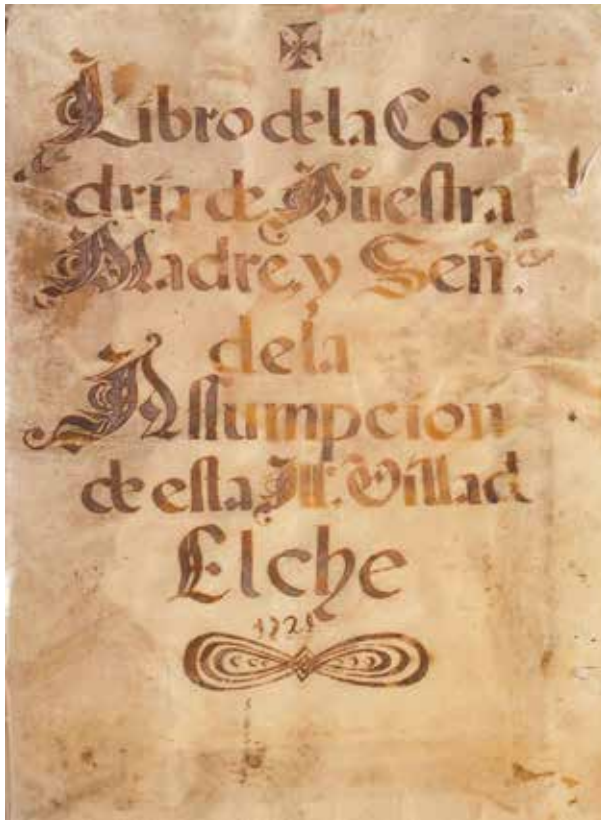 Libro de la Cofa
dría de Nuestra
Madre, y Señ.ª
de la
Assumpcion
de esta Ill. Villa d
Elche